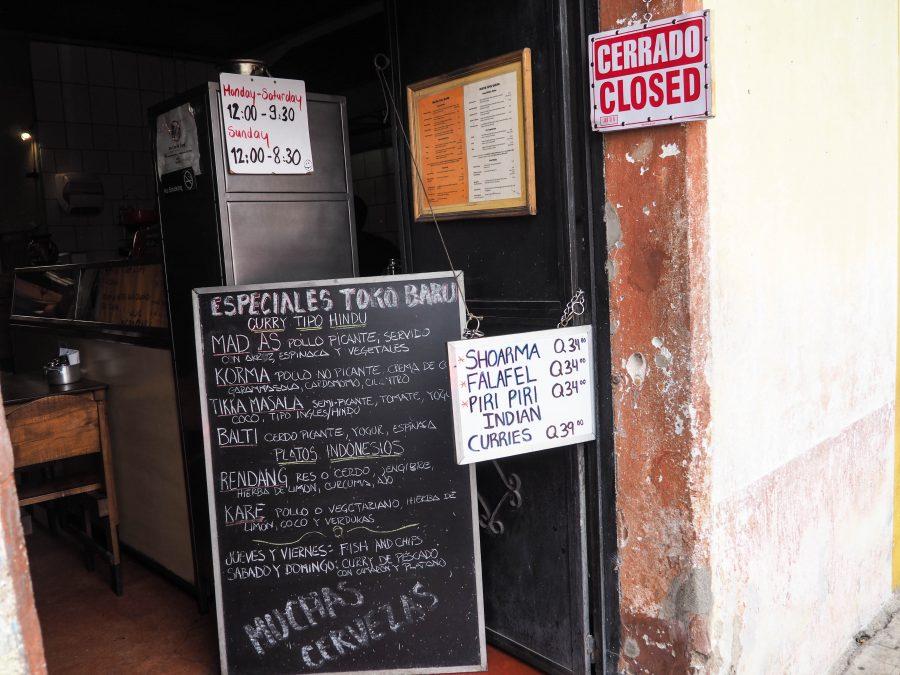 CERRADO
CLOSED
Monday-Saturday
12:00-9:30
Sunday
12:00-8:30
No Smoking
ESPECIALES TOKO BARU
CURRY TIPO HINDU
MAD AS POLLO PICANTE, SERVIDO
CON ARROZ, ESPINACA Y VEGETALES
KORMA POLLO NO PICANTE, CREMA DE C
GARAMMASALA, CARDOMOMO, CILANTRO
TIKKA MASALA SEMI-PICANTE, TOMATE, YOGU
COCO, TIPO INGLES/HINDU
BALTI CERDO PICANTE, YOGUR, ESPINACA
PLATOS INDONESIOS
RENDANG RES O CERDO, JENGIBRE,
HIERBA DE LIMON, CURCUMA, AJO
KARE POLLO O VEGETARIANO, HIERBA DE
LIMON, COCO Y VERDURAS
JUEVES Y VIERNES: FISH AND CHIPS
SABADO Y DOMINGO: CURRY DE PESCADO
CON CAMARON Y PLATANO
MUCHAS
CERVEZAS
SHOARMA Q.34.00
FALAFEL Q34.00
PIRI PIRI Q34.00
INDIAN
CURRIES Q.39.00